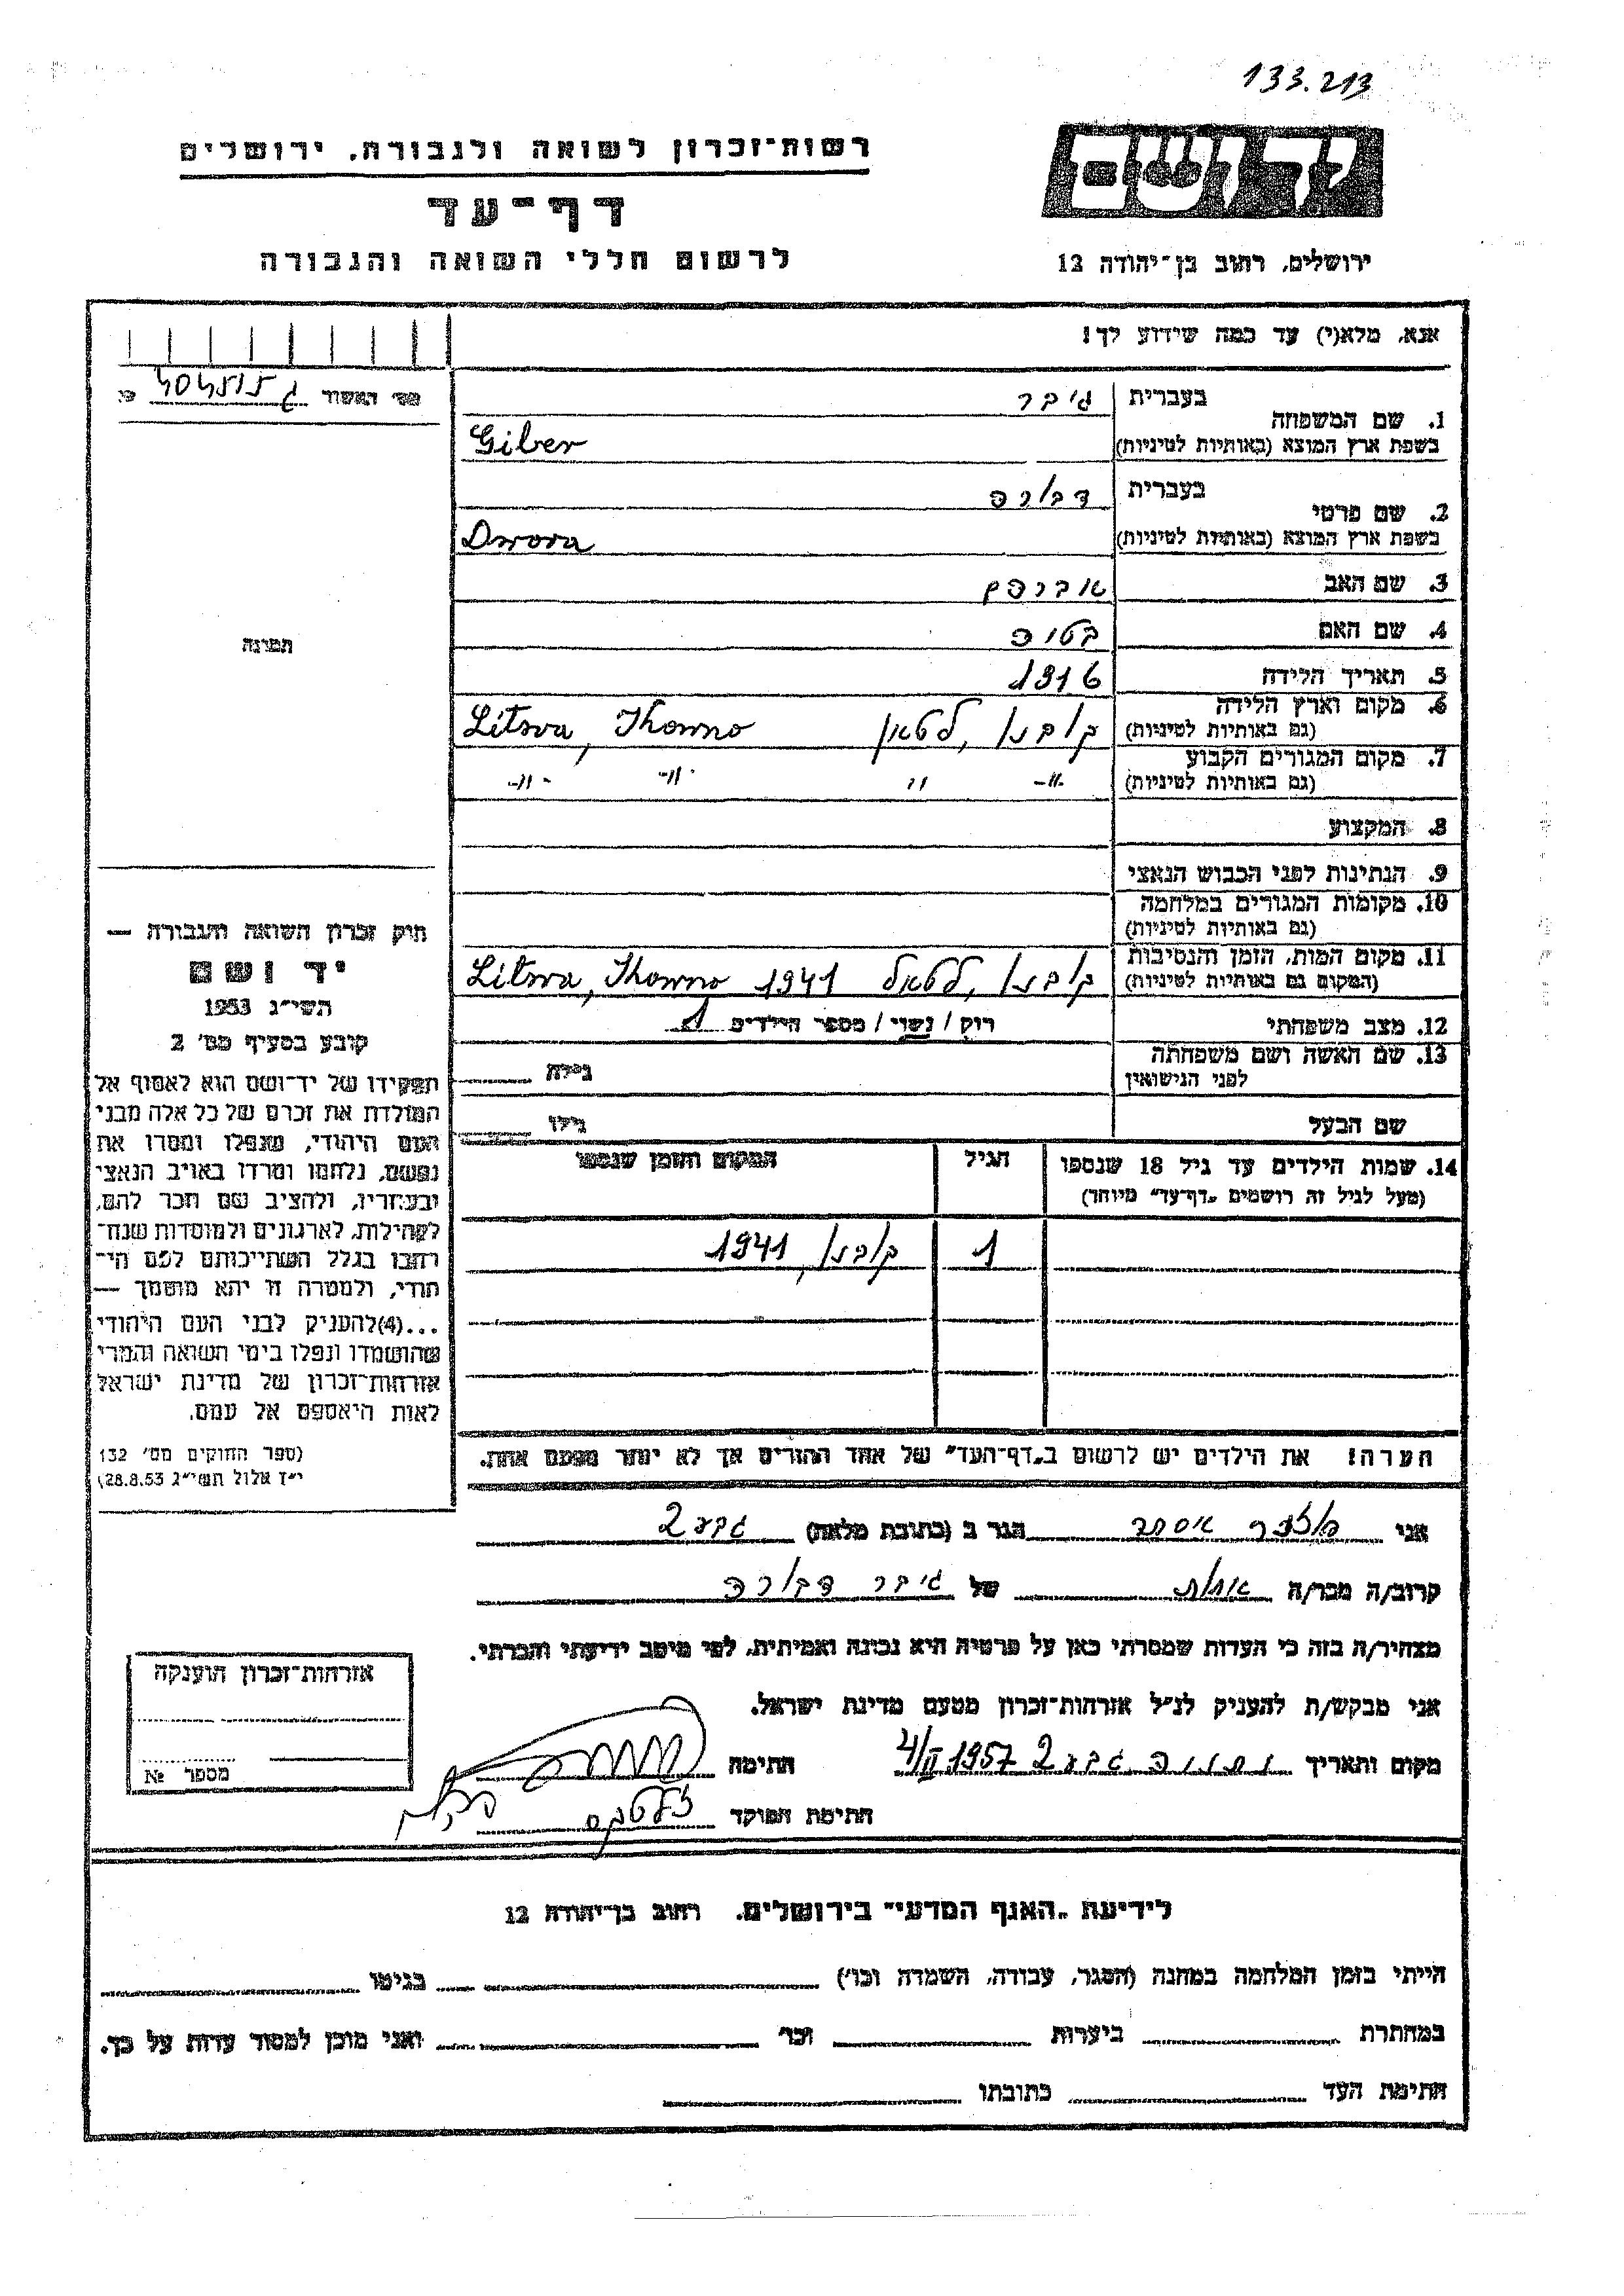 133.213
יד ושם
ירושלים, רחוב בן־יהודה 12
רשות־זכרון לשואה ולגבורה, ירושלים
דף־עד
לרשום חללי השואה והגבורה
אנא, מלא(י) עד כמה שידוע לך!
מס' האשור
1. שם המשפחה בעברית גיבר
בשפת ארץ המוצא (באותיות לטיניות) Giber
2. שם פרטי בעברית דבורה
בשפת ארץ המוצא (באותיות לטיניות) Dwora
3. שם האב אברהם
4. שם האם
5. תאריך הלידה 1916
6. מקום וארץ הלידה קובנו, לטאן Litwa, Kowno
(גם באותיות לטיניות)
7. מקום המגורים הקבוע -"- " -"- -"-
(גם באותיות לטיניות)
8. המקצוע
9. הנתינות לפני הכבוש הנאצי
10. מקומות המגורים במלחמה
(גם באותיות לטיניות)
11. מקום המות, הזמן והנסיבות קובנו, 1941 Litwa, Kowno
(המקום גם באותיות לטיניות)
12. מצב משפחתי רוק / נשוי / מספר הילדים 1
13. שם האשה ושם משפחתה גילה
לפני הנישואין
שם הבעל גילו
14. שמות הילדים עד גיל 18 שנספו הגיל המקום והזמן שנספו
(מעל לגיל זה רושמים „דף־עד" מיוחד)
1 קובנו, 1941
הערה! את הילדים יש לרשום ב„דף־העד" של אחד ההורים אך לא יותר מפעם אחת.
תמונה
חוק זכרון השואה והגבורה —
יד ושם
תשי"ג 1953
קובע בסעיף מס' 2
תפקידו של יד־ושם הוא לאסוף אל
המולדת את זכרם של כל אלה מבני
העם היהודי, שנפלו ומסרו את
נפשם, נלחמו ומרדו באויב הנאצי
ובעוזריו, ולהציב שם וזכר להם,
לקהילות, לארגונים ולמוסדות שנח־
רבו בגלל השתייכותם לעם הי־
הודי, ולמטרה זו יהא מוסמך —
...(4)להעניק לבני העם היהודי
שהושמדו ונפלו בימי השואה והמרי
אזרחות־זכרון של מדינת ישראל
לאות היאספם אל עמם.
(ספר החוקים מס' 132
י"ז אלול תשי"ג 28.8.53)
אני אסתר הגר ב (כתובת מלאה) גבע 2
קרוב/ה מכר/ה אחות של גיבר דבורה
מצהיר/ה בזה כי העדות שמסרתי כאן על פרטיה היא נכונה ואמיתית, לפי מיטב ידיעתי והכרתי.
אני מבקש/ת להעניק לנ"ל אזרחות־זכרון מטעם מדינת ישראל.
מקום ותאריך גבע 2 4/II 1957 חתימה
חתימת הפוקד
אזרחות־זכרון הוענקה
מספר №
לידיעת „האגף המדעי" בירושלים, רחוב בן־יהודה 12
הייתי בזמן המלחמה במחנה (הסגר, עבודה, השמדה וכו') בגיטו
במחתרת ביערות וכו' ואני מוכן למסור עדות על כך.
חתימת העד כתובתו